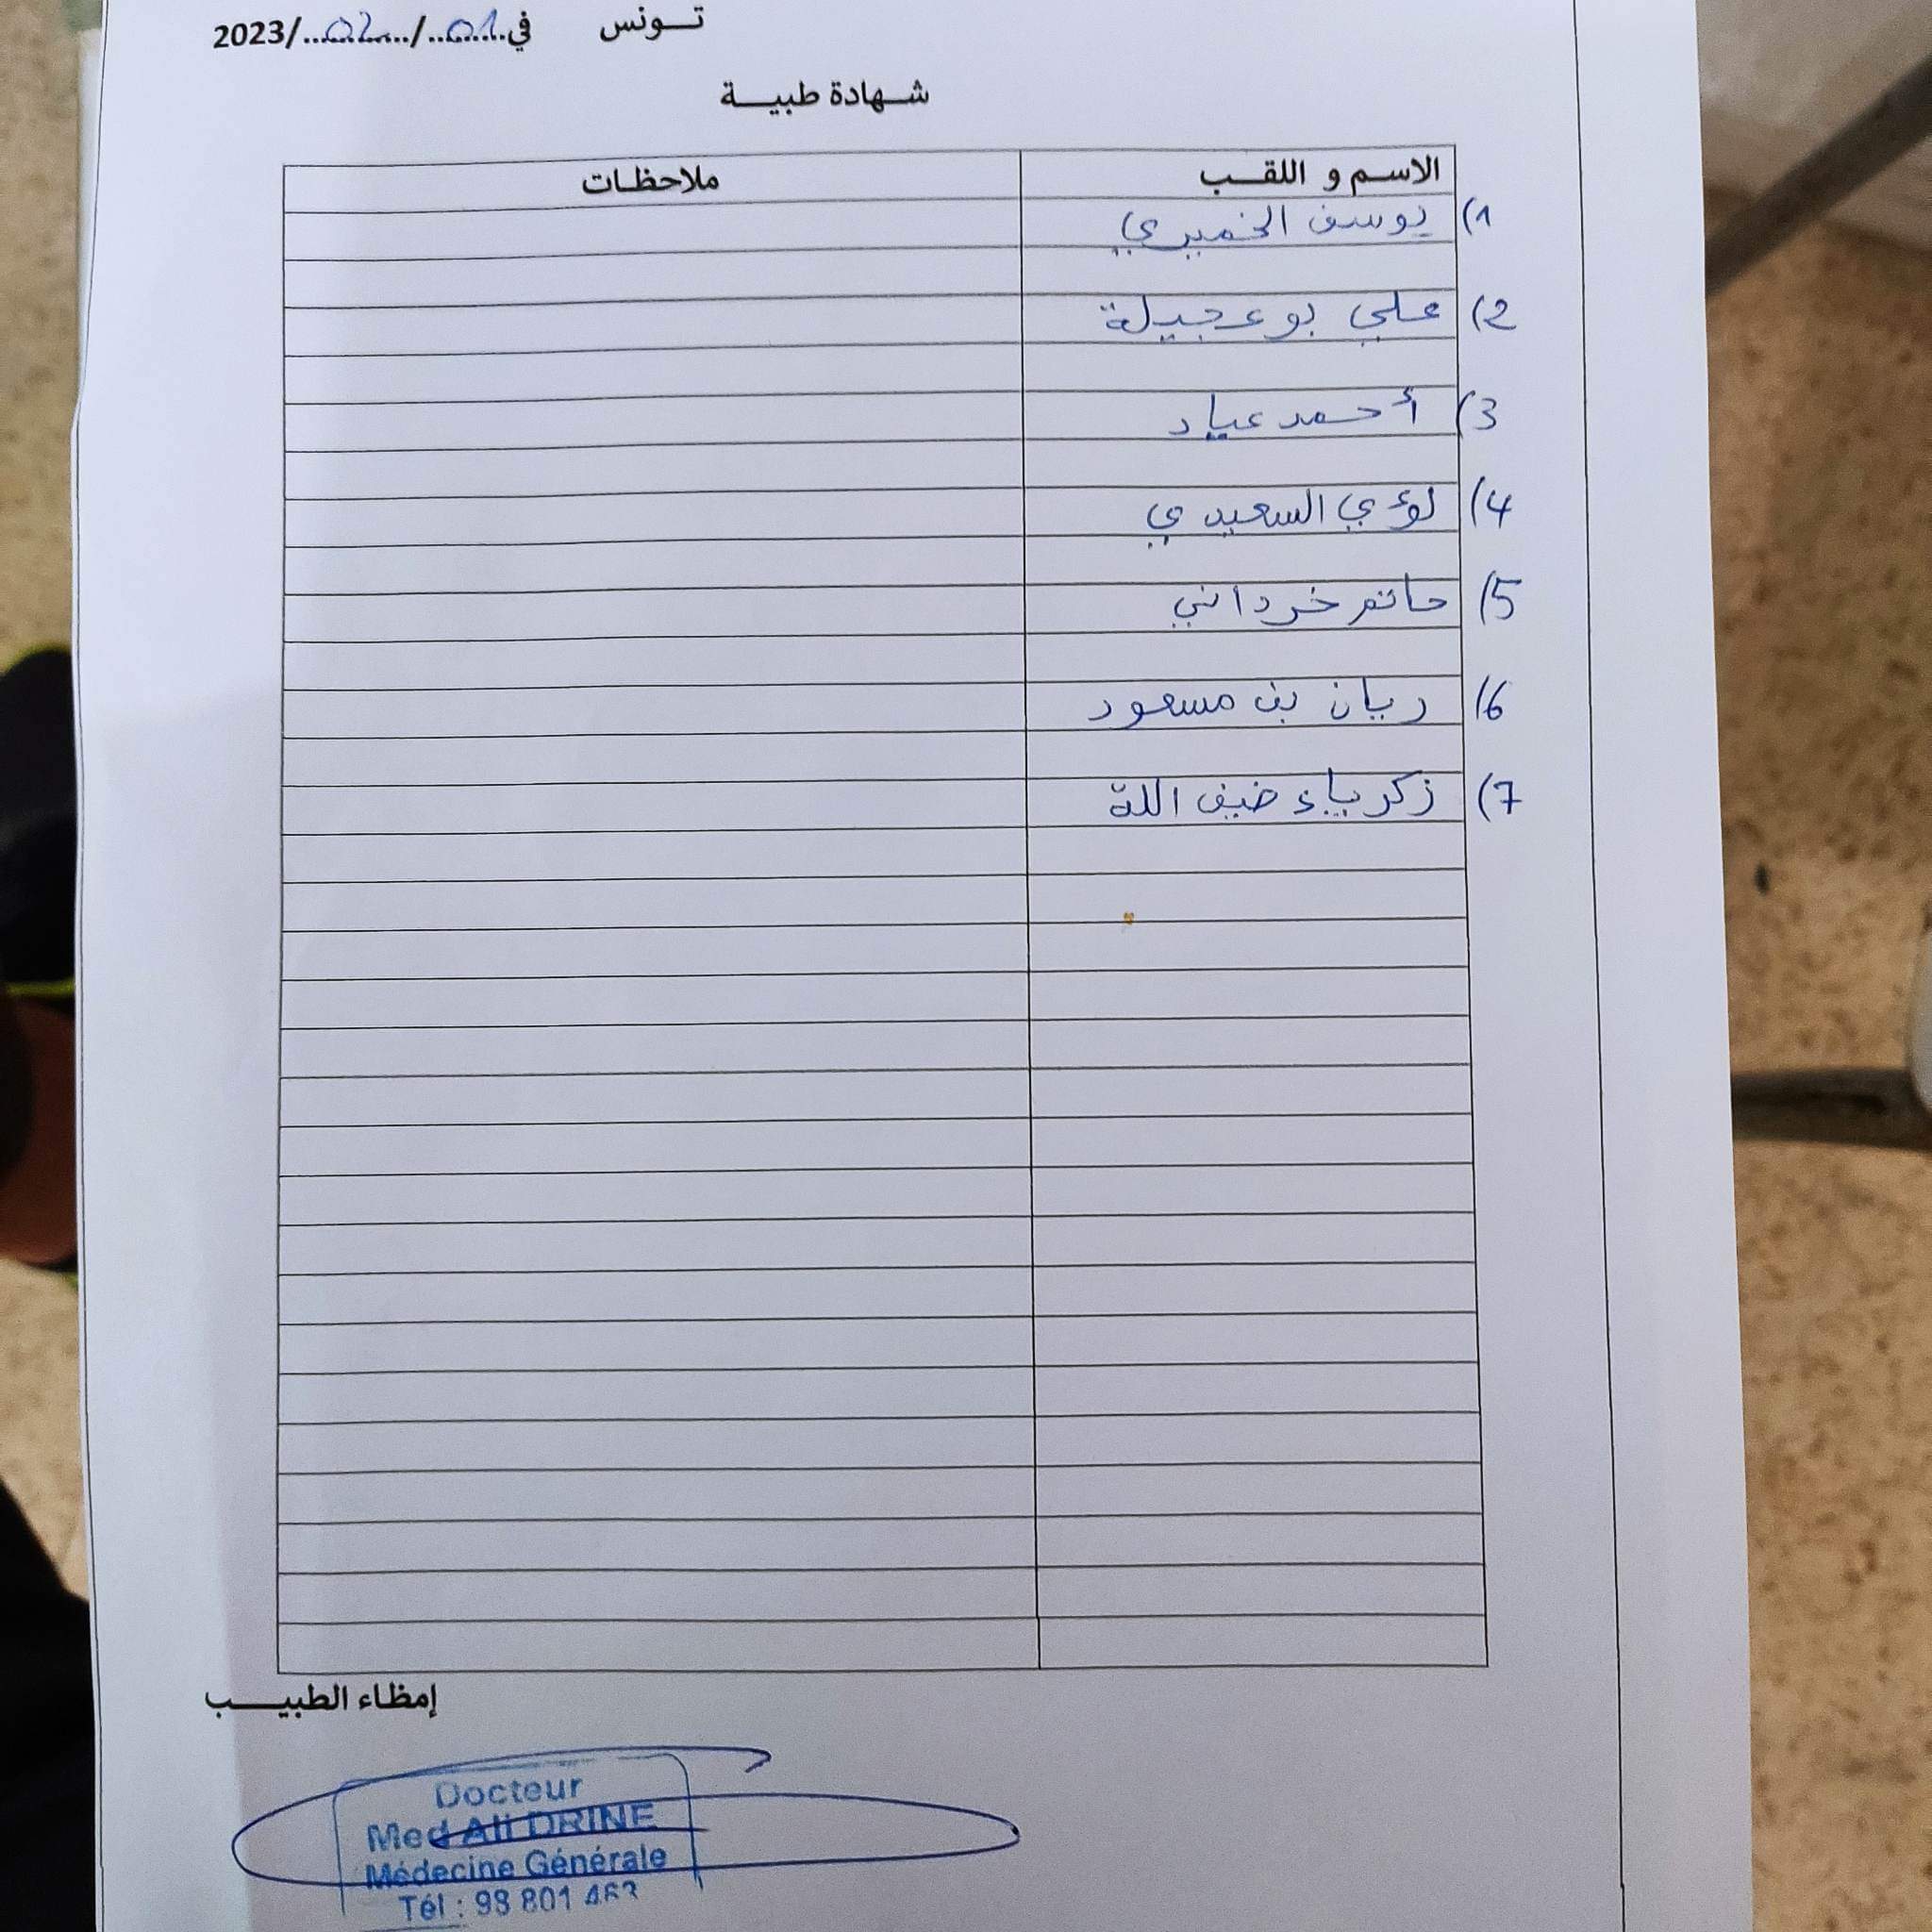 تونس في 01/02/2023
شهادة طبية
الاسم و اللقب ملاحظات
1) يوسف الخميري
2) علي بوعجيلة
3) أحمد عياد
4) لؤي السعيدي
5) حاتم خرداني
6) ريان بن مسعود
7) زكرياء ضيف اللة
إمظاء الطبيب
Docteur
Med Ali DRINE
Médecine Générale
Tél : 98 801 463